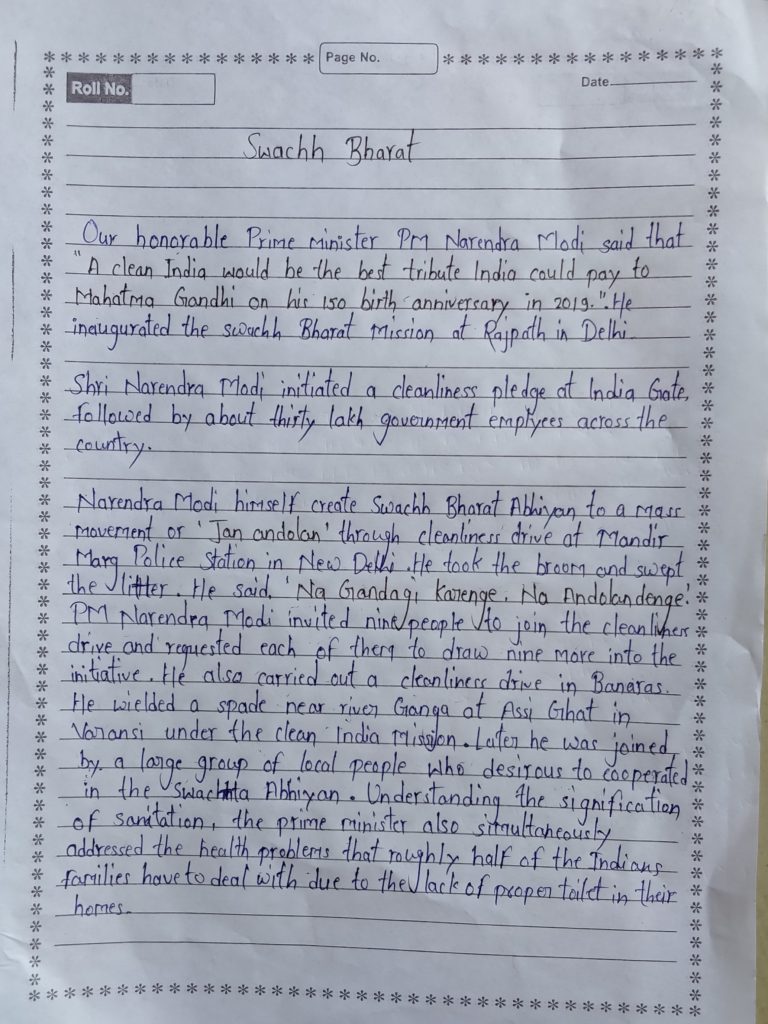 Page No.
Roll No.
Date
Swachh Bharat
Our honorable Prime minister PM Narendra Modi said that
"A clean India would be the best tribute India could pay to
Mahatma Gandhi on his 150 birth anniversary in 2019.". He
inaugurated the swachh Bharat Mission at Rajpath in Delhi.
Shri Narendra Modi initiated a cleanliness pledge at India Gate,
followed by about thirty lakh government emplyees across the
country.
Narendra Modi himself create Swachh Bharat Abhiyan to a mass
movement or 'Jan andolan' through cleanliness drive at Mandir
Marg Police Station in New Delhi. He took the broom and swept
the litter. He said, 'Na Gandagi Karenge, Na Andolandenge.'
PM Narendra Modi invited nine people to join the cleanliners
drive and requested each of them to draw nine more into the
initiative. He also carried out a cleanliness drive in Banaras.
He wielded a spade near river Ganga at Assi Ghat in
Varansi under the clean India Mission. Later he was joined
by a large group of local people who desirous to cooperated
in the swachhta Abhiyan. Understanding the signification
of sanitation, the prime minister also simultaneously
addressed the health problems that roughly half of the Indians
families have to deal with due to the lack of proper toilet in their
homes.